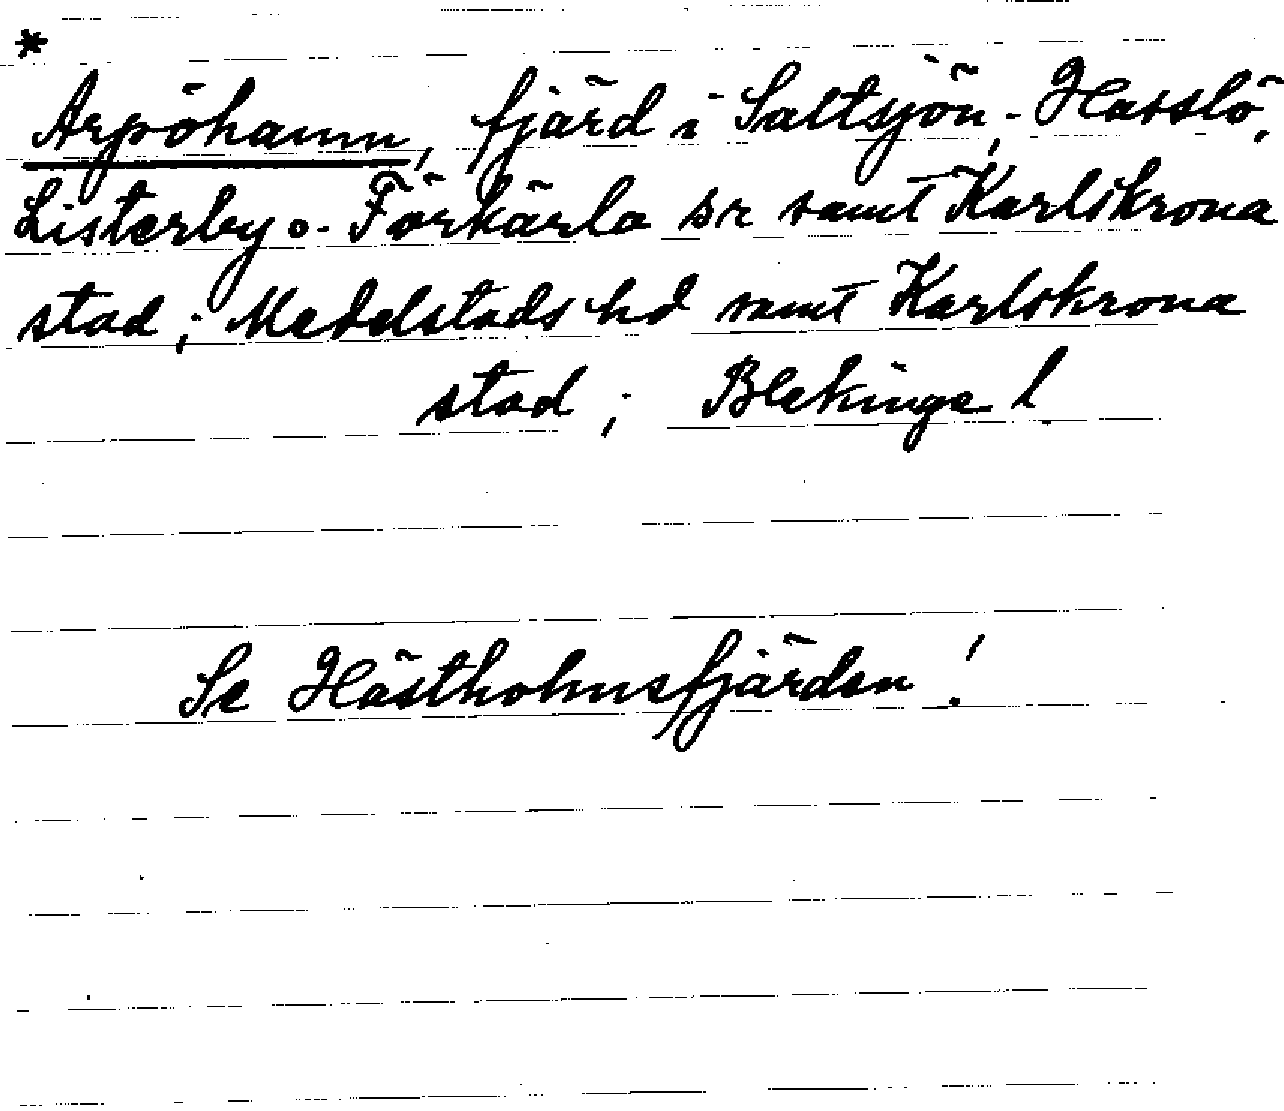 *
Arpöhamn, fjärd i Saltsjön; Hasslö,
Listerby o. Förkärla sr samt Karlskrona
stad; Medelstads hd samt Karlskrona
stad; Blekinge l
Se Hästholmsfjärden!